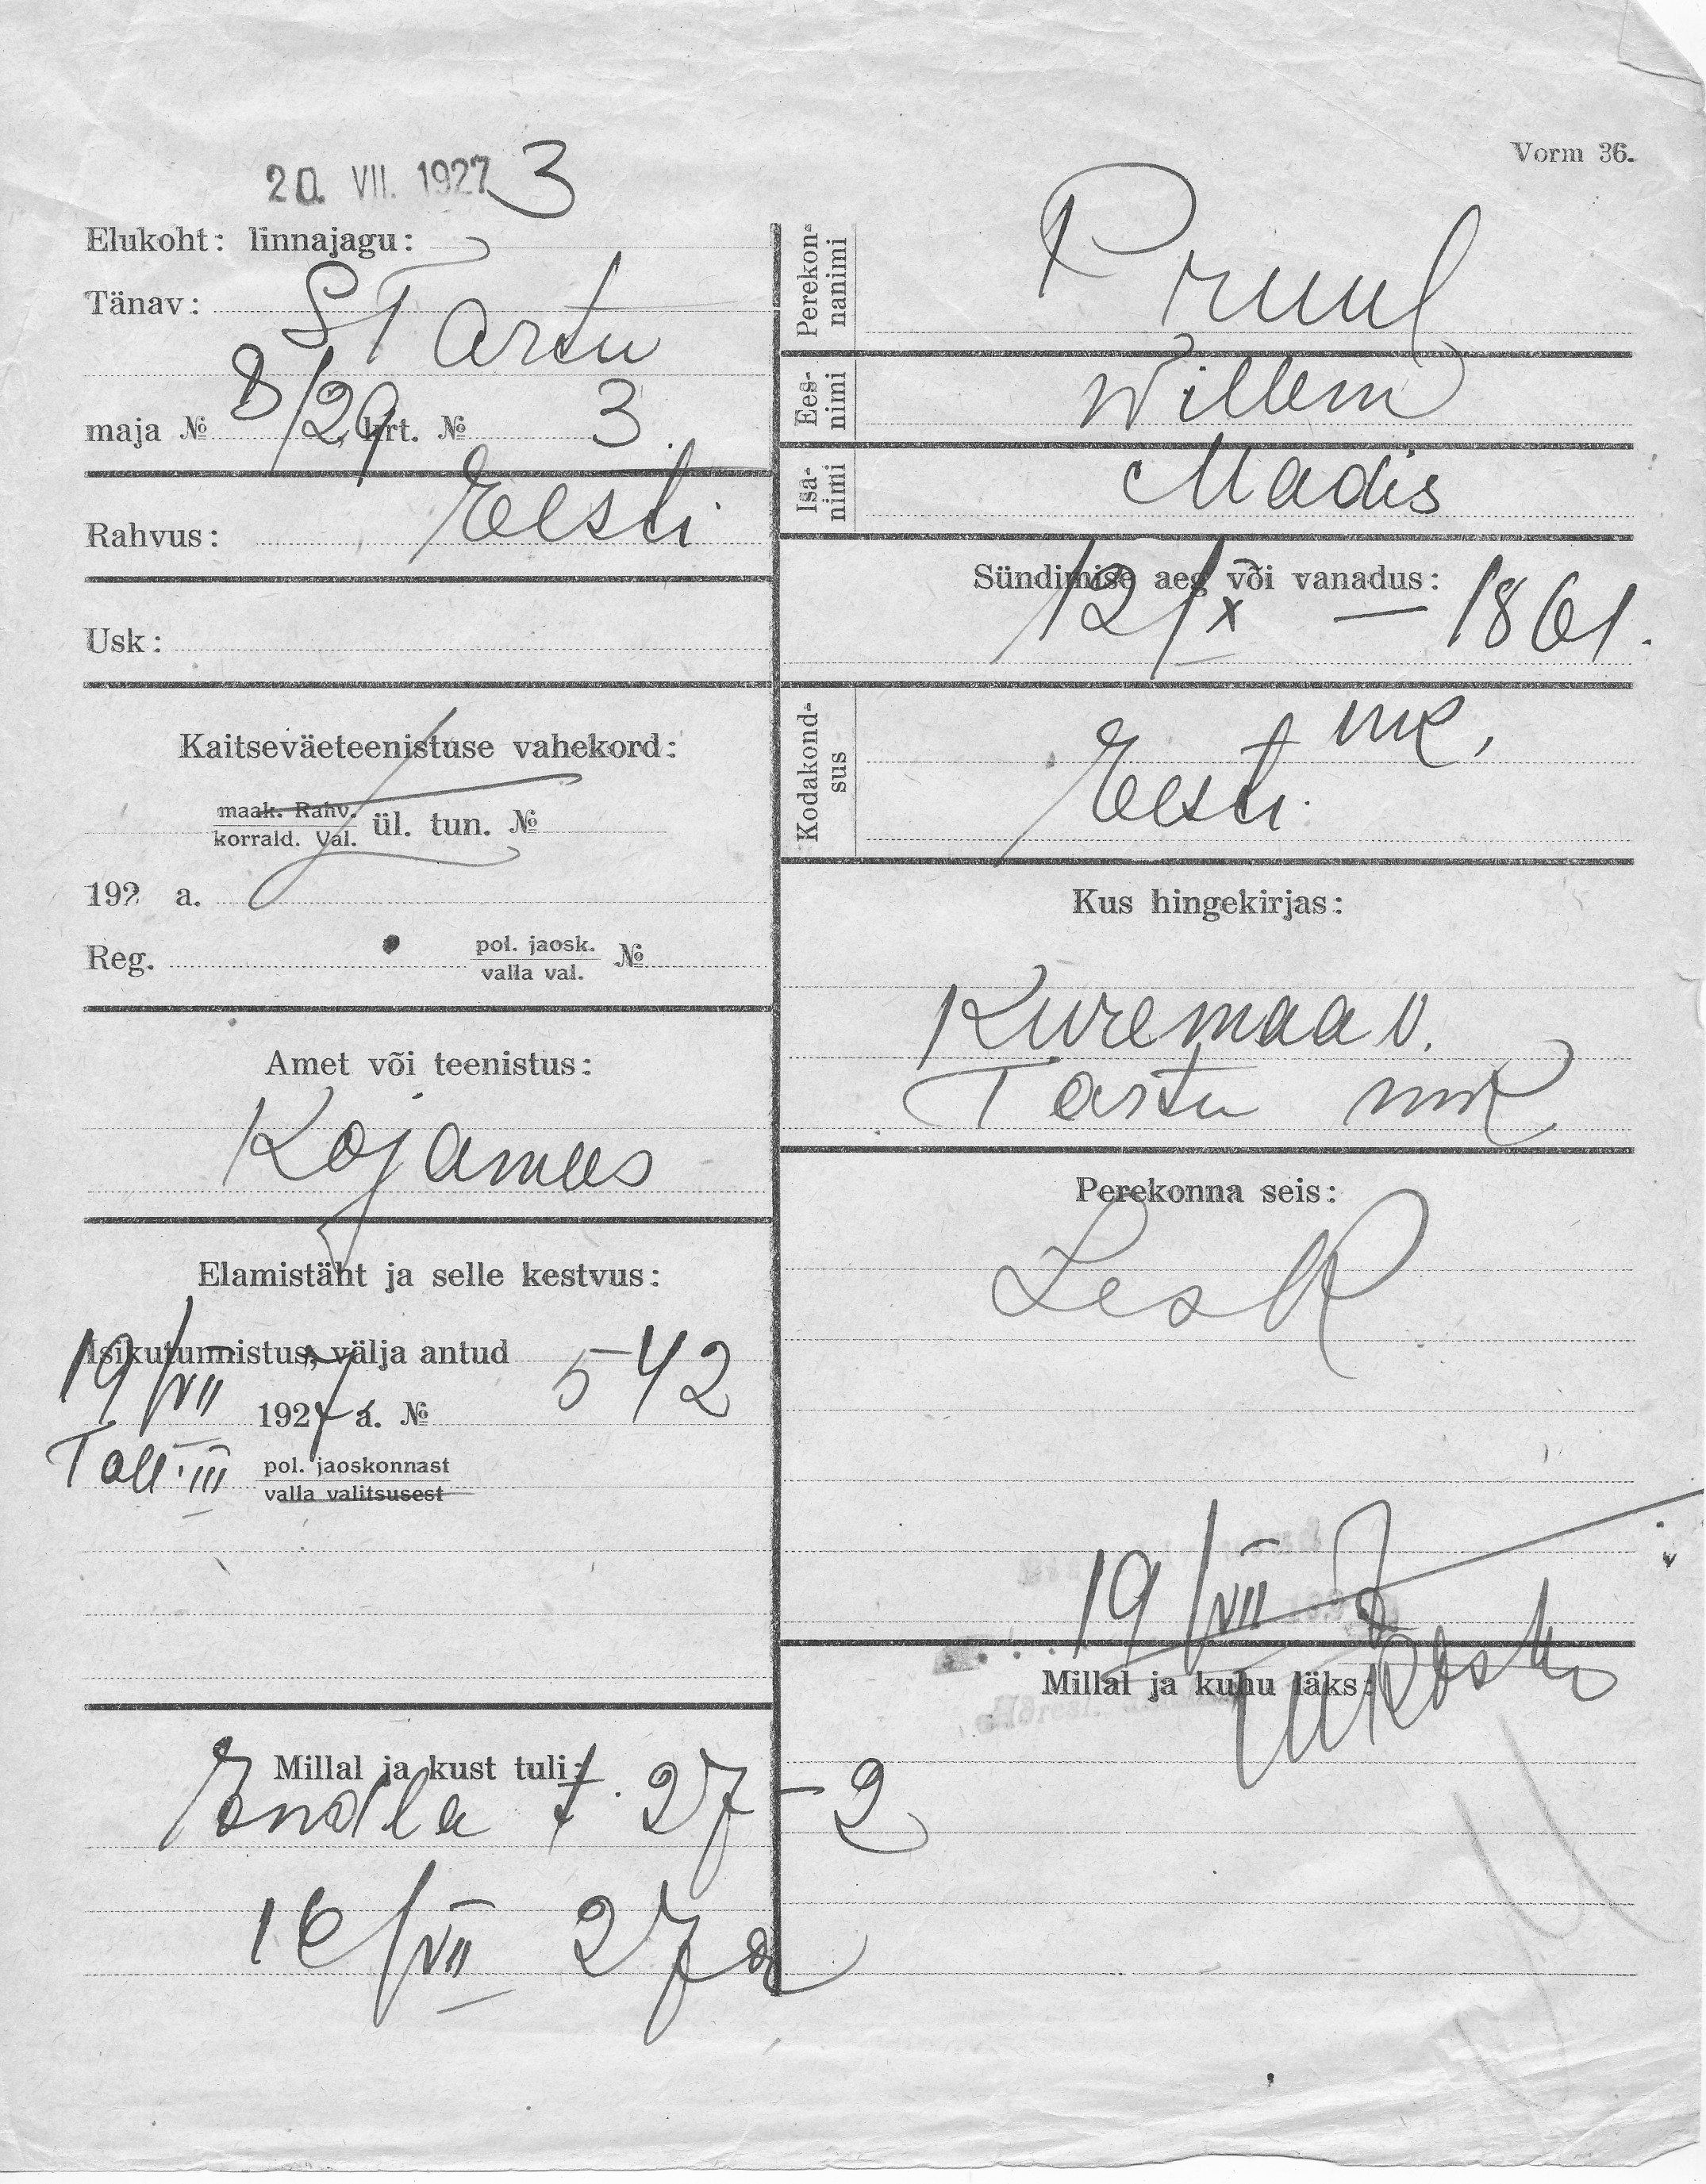 Vorm 36.
20. VII. 1927 3
Elukoht: linnajagu:
Tänav: S Tartu
maja № 8/29, krt. № 3.
Rahvus: Eesti
Usk:
Kaitseväeteenistuse vahekord:
maak. Rahv.
korrald. Val. ül. tun. №
192 a.
Reg. pol. jaosk.
valla val. №
Amet või teenistus:
Kojamees
Elamistäht ja selle kestvus:
Isikutunnistus, välja antud
19/VII 1927 a. № 542
Tall. III pol. jaoskonnast
valla valitsusest
Millal ja kust tuli:
Endla t. 27-2
16/VII 27 a
Perekon-
nanimi Pruul
Ees-
nimi Willem
Isa-
nimi Madis
Sündimise aeg või vanadus:
12/X — 1861.
mr,
Kodakond-
sus Eesti
Kus hingekirjas:
Kuremaa v.
Tartu mk
Perekonna seis:
Lesk
19/VII 27
Millal ja kuhu läks: